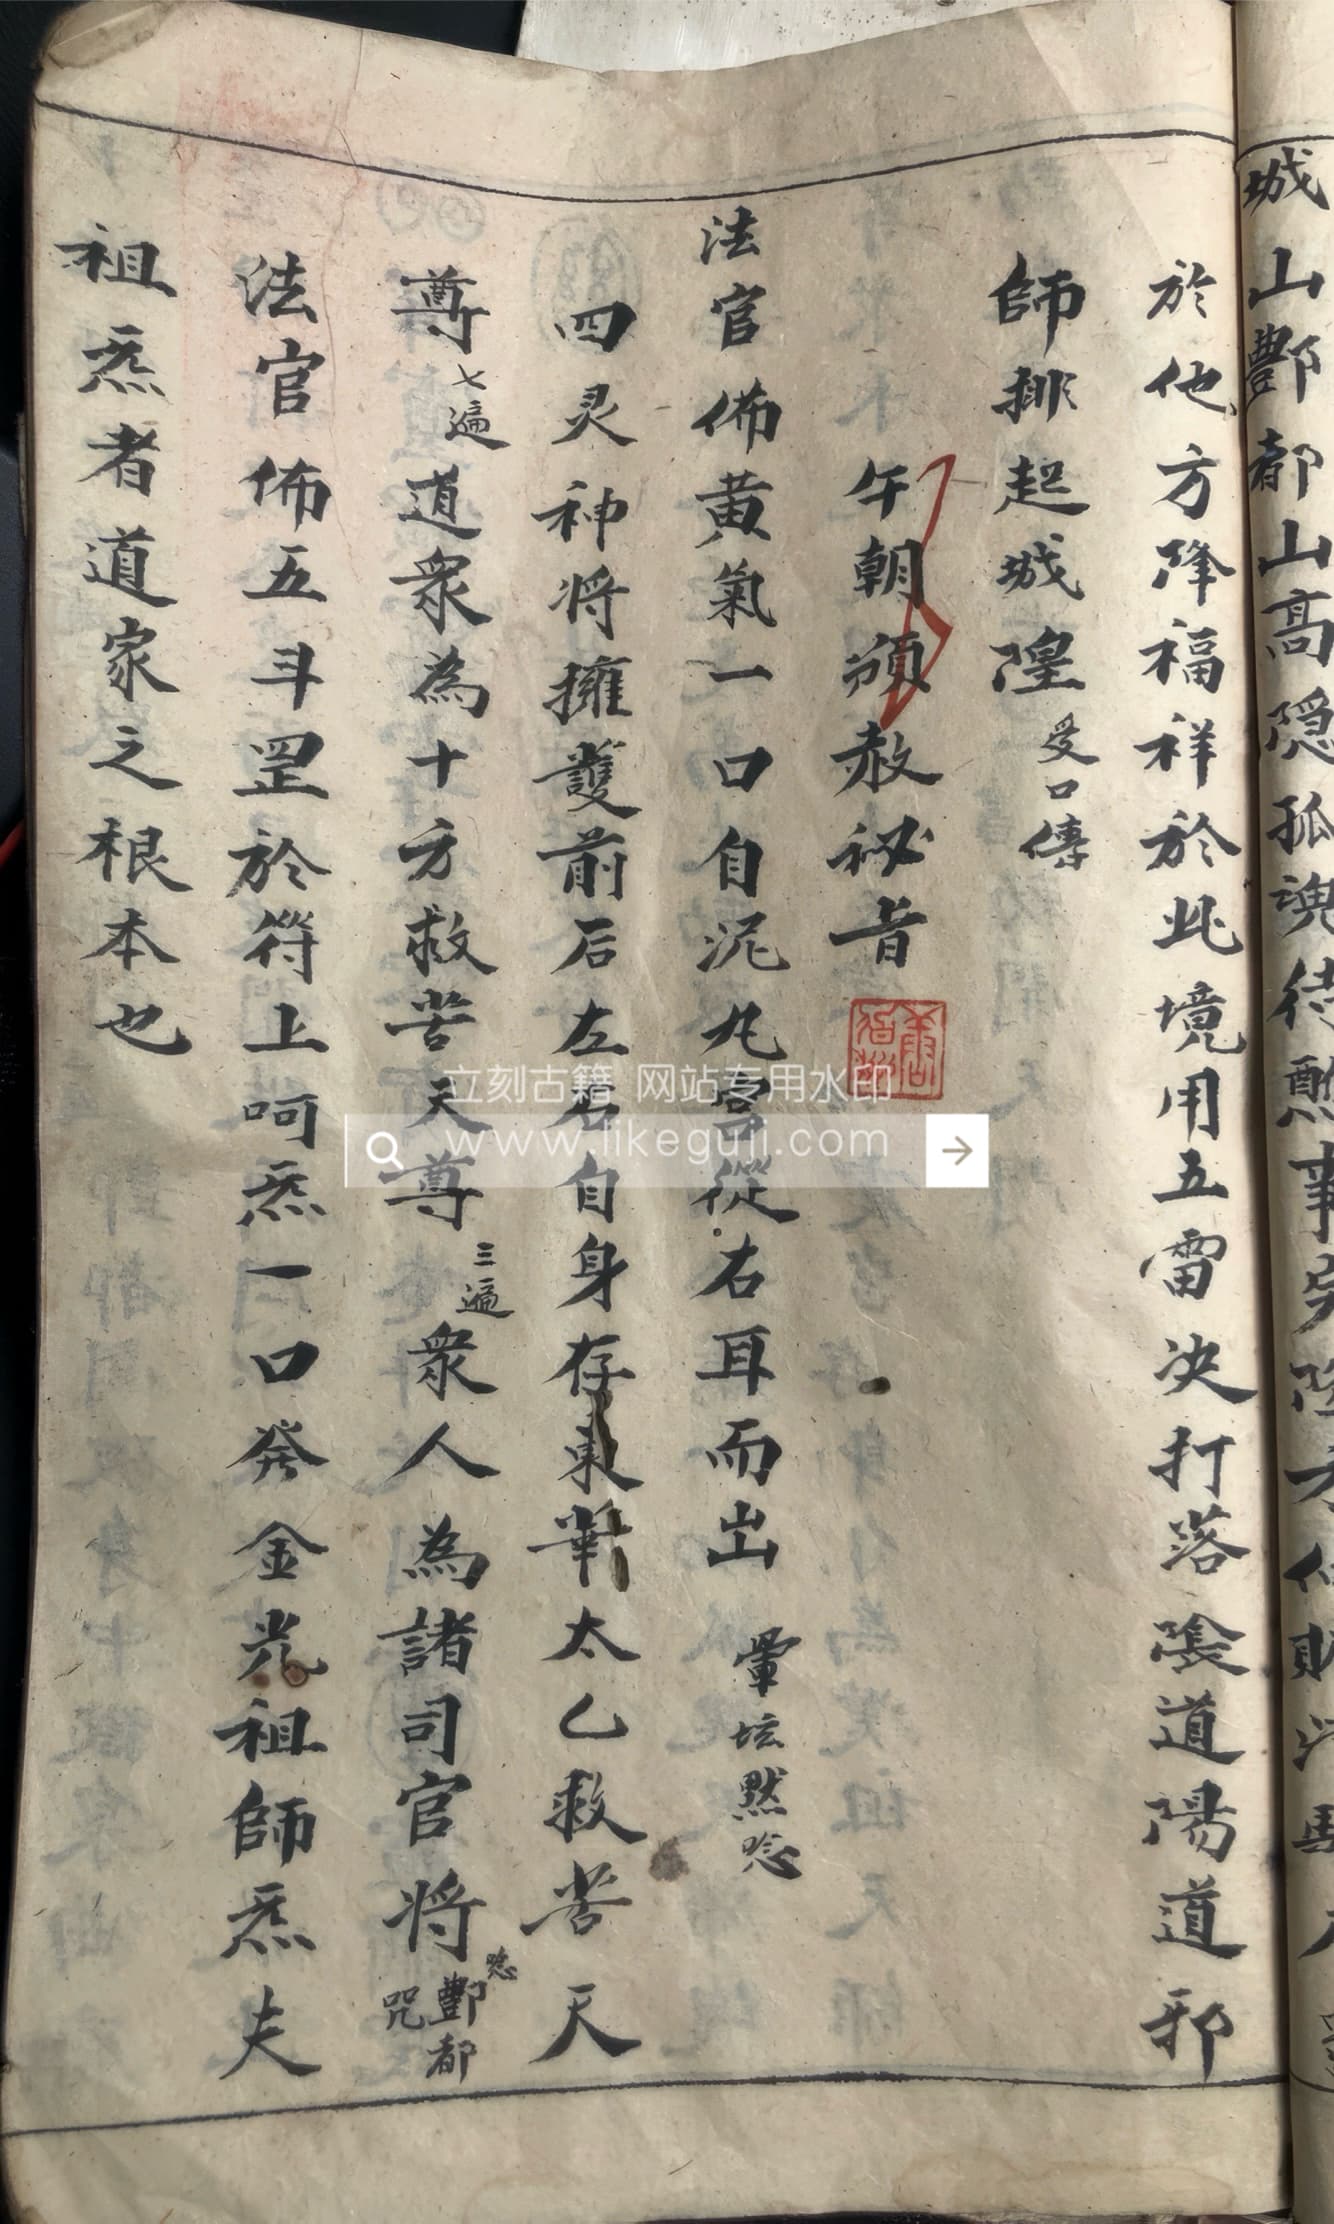 城山酆都山高隐孤魂待醮事完
於他方降福祥於此境用五雷决打落陰道陽道邪
師排起城隍受口傳
午朝頒赦秘旨
法官佈黄氣一口自泥丸宮從右耳而出 暈坛默唸
四灵神将擁護前后左右自身存東華太乙救苦天
尊七遍道衆為十方救苦天尊三遍衆人為諸司官将唸酆都咒
法官佈五斗罡於符上呵炁一口發金光祖師炁夫
祖炁者道家之根本也
立刻古籍 网站专用水印
www.likeguji.com